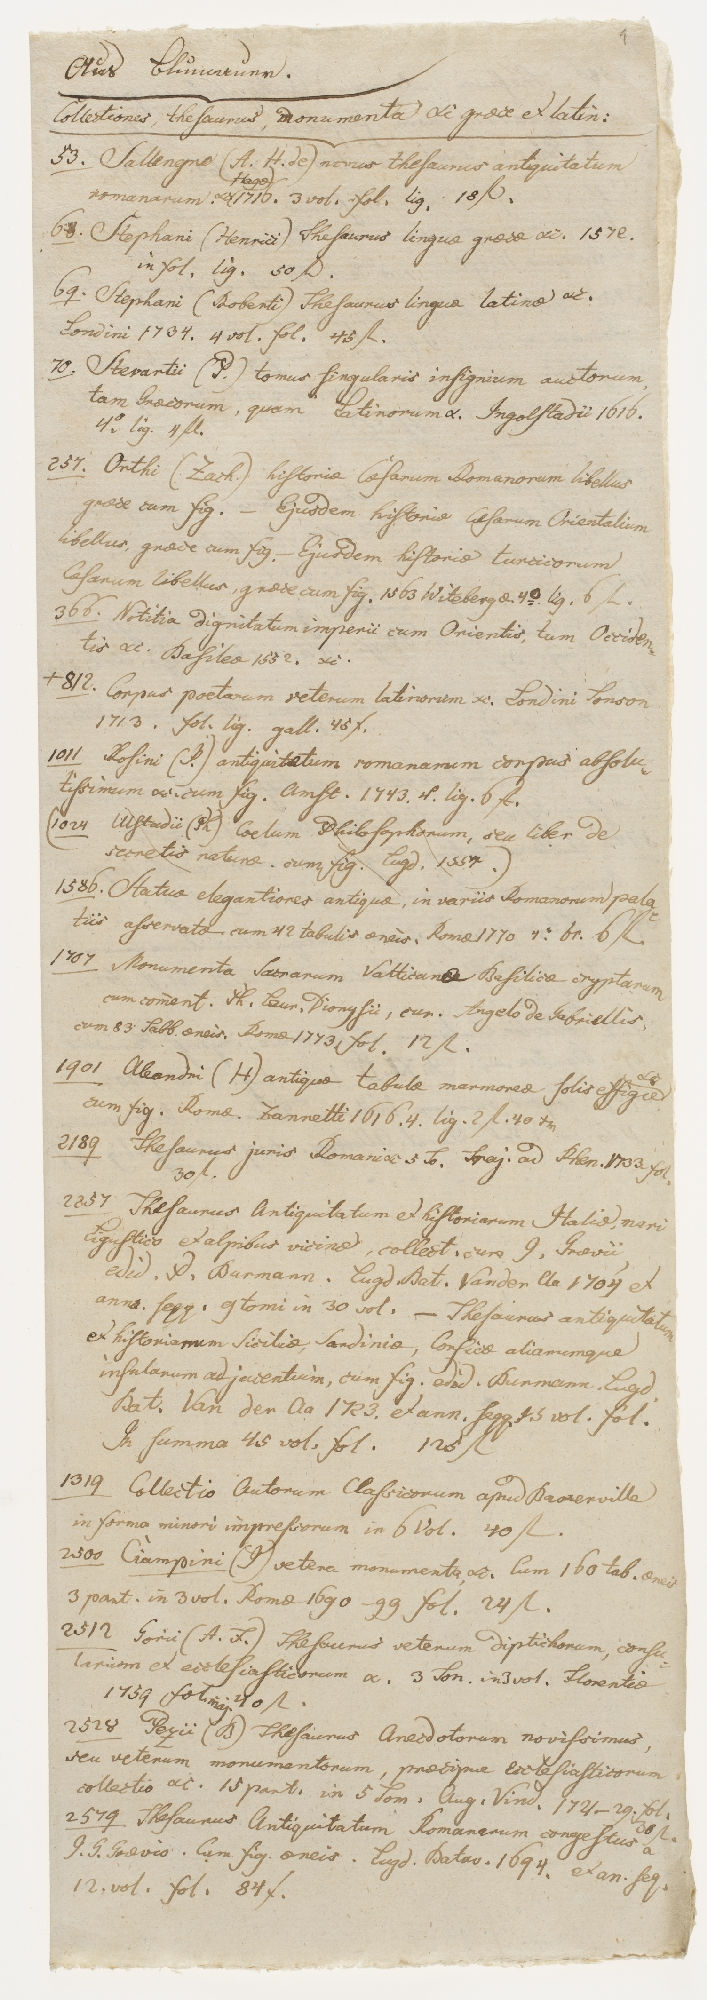 1
Aus
Collectiones, thesaurus, monumenta &c græce et latin:
53. Sallengre (A. H. de) novus thesaurus antiquitatum
romanarum. &c Hagæ 1716. 3 vol. fol. lig. 18 fl.
68. Stephani (Henrici) Thesaurus linguæ græcæ &c. 1572.
in fol. lig. 50 fl.
69. Stephani (Roberti) Thesaurus linguæ latinæ &c.
Londini 1734. 4 vol. fol. 45 fl.
70. Stevartii (P.) tomus singularis insignium auctorum,
tam Græcorum, quam Latinorum &. Ingolstadii 1616.
4º lig. 4 fl.
257. Orthi (Zach.) historiæ Cæsarum Romanorum libellus
græce cum fig. — Ejusdem historiæ Cæsarum Orientalium
libellus, græce cum fig. — Ejusdem historiæ turcicorum
Cæsarum libellus, græce cum fig. 1563 Witebergæ. 4º lig. 6 fl.
366. Notitia dignitatum imperii cum Orientis, tum Occiden-
tis &c. Basileæ 1552. &c.
+812. Corpus poetarum veterum latinorum &c. Londini Tonson
1713. fol. lig. gall. 45 f.
1011 Rosini (J.) antiquitatum romanarum corpus absolu-
tissimum &c. cum fig. Amst. 1743. 4. lig. 6 fl.
(1024 Ulstadii (Ph) Coelum Philosophorum, seu liber de
secretis naturæ. cum fig. Lugd. 1557.)
1586. Statuæ elegantiores antiquæ, in variis Romanorum pala-
tiis asservatæ cum 42 tabulis æneis. Romæ 1770 4º br. 6 fl.
1707 Monumenta Sacrarum Vatticanæ Basilicæ cryptarum
cum coment. Ph. Laur. Dionysii, cur. Angelo de Gabriellis.
cum 83 Tabb. æneis. Romæ 1773, fol. 12 fl.
1901 Aleandri (H) antiquæ tabulæ marmoreæ solis effigie &c
cum fig. Romæ. Zannetti 1616. 4. lig. 2 fl. 40
2189 Thesaurus juris Romani &c 5 To. Traj. ad Rhen. 1733 fol.
30 fl.
2257 Thesaurus Antiquitatum et historiarum Italiæ, mari
Ligustico et alpibus vicinæ, collect. cura J. Grævii
edid. P. Burmann. Lugd. Bat. Vander Aa 1704 et
ann. seqq. 9 tomi in 30 vol. — Thesaurus antiquitatum
et historiarum Siciliæ, Sardiniæ, Corsicæ aliarumque
insularum adjacentium, cum fig. edid. Burmann. Lugd.
Bat. Van der Aa 1723. et ann. seqq. 15 vol. fol.
In summa 45 vol. fol. 125 fl
1319 Collectio Autorum Classicorum apud Bascerville
in forma minori impressorum in 6 Vol. 40 fl.
2500 Ciampini (J) vetera monumenta, &c. Cum 160 tab. æneis
3 part. in 3 vol. Romæ 1690-99 fol. 24 fl.
2512 Gorii (A. F.) Thesaurus veterum diptichorum, consu-
larium et ecclesiasticorum &. 3 Ton. in 3 vol. Florentiæ
1759 fol. maj. 20 fl.
2528 Pezii (B) Thesaurus Anecdotorum novissimus,
seu veterum monumentorum, præcipue ecclesiasticorum
collectio &c. 15 part. in 5 Tom. Aug. Vind. 1721-29. fol.
20 fl.
2579 Thesaurus Antiquitatum Romanarum congestus a
J. G. Grævio. Cum fig. æneis. Lugd. Batav. 1694. et an. seq.
12. vol. fol. 84 f.